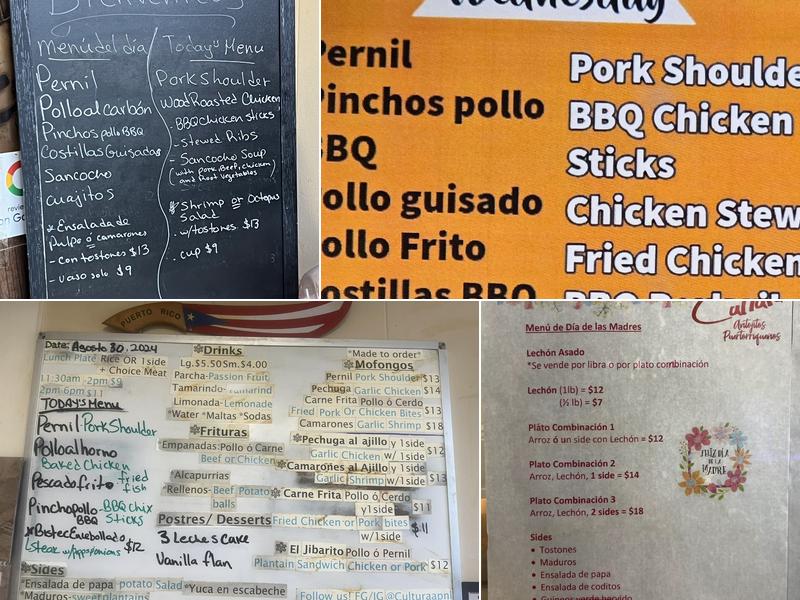 Bienvenidos
Menú del día
Pernil
Pollo al carbón
Pinchos pollo BBQ
Costillas Guisadas
Sancocho
Cuajitos
* Ensalada de
Pulpo ó camarones
- con tostones $13
- vaso solo $9
Today's Menu
Pork Shoulder
Wood Roasted Chicken
- BBQ chicken sticks
- Stewed Ribs
- Sancocho Soup
(with Pork, Beef, Chicken
and Root vegetables)
* Shrimp or Octopus
Salad
. w/tostones $13
. cup $9
Wednesday
Pernil
Pinchos pollo
BBQ
Pollo guisado
Pollo Frito
Costillas BBQ
Pork Shoulde
BBQ Chicken
Sticks
Chicken Stew
Fried Chicken
PUERTO RICO
Date: Agosto 30, 2024
Lunch Plate Rice OR 1side
+ Choice Meat
11:30am - 2pm $9
2pm-6pm $11
TODAY'S Menu
Pernil Pork Shoulder
Pollo al horno
Baked Chicken
Pescado frito fried
fish
Pincho pollo - BBQ chix
BBQ Sticks
* Bistec Encebollado
(steak w/ peps/onions $12
*Sides
*Ensalada de papa potato Salad
*Maduros-sweet plantains
*Drinks
Lg.$5.50 Sm.$4.00
Parcha-Passion Fruit
Tamarindo- Tamarind
Limonada-Lemonade
*Water *Maltas *Sodas
*Frituras
*Empanadas: Pollo ó Carne
Beef or Chicken
*Alcapurrias
*Rellenos- Beef Potato
balls
Postres/ Desserts
3 Leches Cake
Vanilla flan
*Yuca en escabeche
*Made to order*
*Mofongos
Pernil Pork Shoulder $13
Pechuga Garlic Chicken $14
Carne Frita Pollo ó Cerdo
Fried Pork Or Chicken Bites $13
Camarones Garlic Shrimp $18
*Pechuga al ajillo y 1side
Garlic Chicken w/ 1side $12
*Camarones al Ajillo y 1side
Garlic Shrimp w/1side $13
*Carne Frita Pollo ó Cerdo
y1side $11
Fried Chicken or Pork bites
w/1side $11
*El Jibarito Pollo ó Pernil
Plantain Sandwich Chicken or Pork $12
Follow us! FG/IG @Culturaapn
Antojitos
Puertorriqueños
Menú de Día de las Madres
Lechón Asado
*Se vende por libra o por plato combinación
Lechón (1lb) = $12
(½ lb) = $7
Plato Combinación 1
Arroz ó un side con Lechón = $12
Plato Combinación 2
Arroz, Lechón, 1 side = $14
Plato Combinación 3
Arroz, Lechón, 2 sides = $18
Sides
• Tostones
• Maduros
• Ensalada de papa
• Ensalada de coditos
• Guineos verde hervido
FELIZ DÍA
DE LA
MADRE